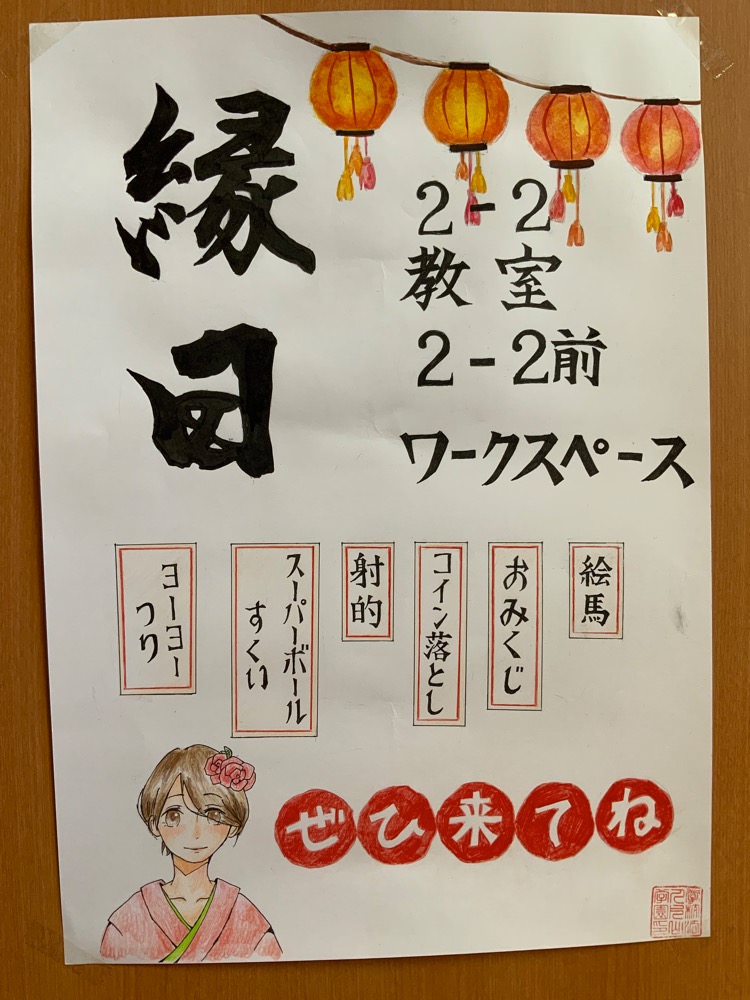 縁日
2-2
教室
2-2前
ワークスペース
絵馬
おみくじ
コイン落とし
射的
スーパーボール
すくい
ヨーヨー
つり
ぜひ来てね